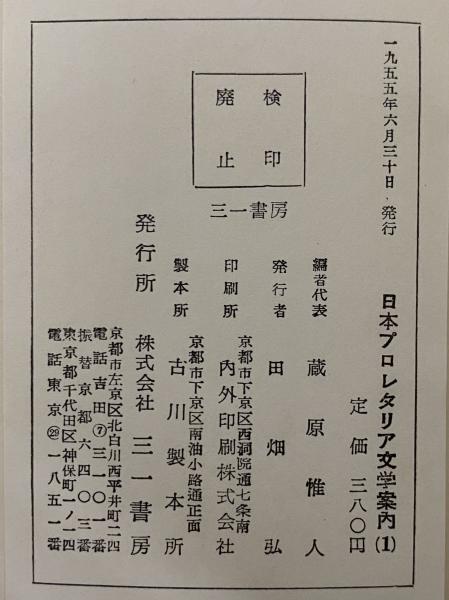 一九五五年六月三十日・発行
日本プロレタリア文学案内(1)
定価 三八〇円
検印
廃止
三一書房
編者代表 蔵原惟人
発行者 田畑弘
京都市下京区西洞院通七条南
印刷所 内外印刷株式会社
京都市下京区南油小路通正面
製本所 古川製本所
発行所 株式会社 三一書房
京都市左京区北白川西平井町二四
電話吉田⑦三一〇一番
振替京都六四〇三番
東京都千代田区神保町一ノ一四
電話東京㉙一八五一番